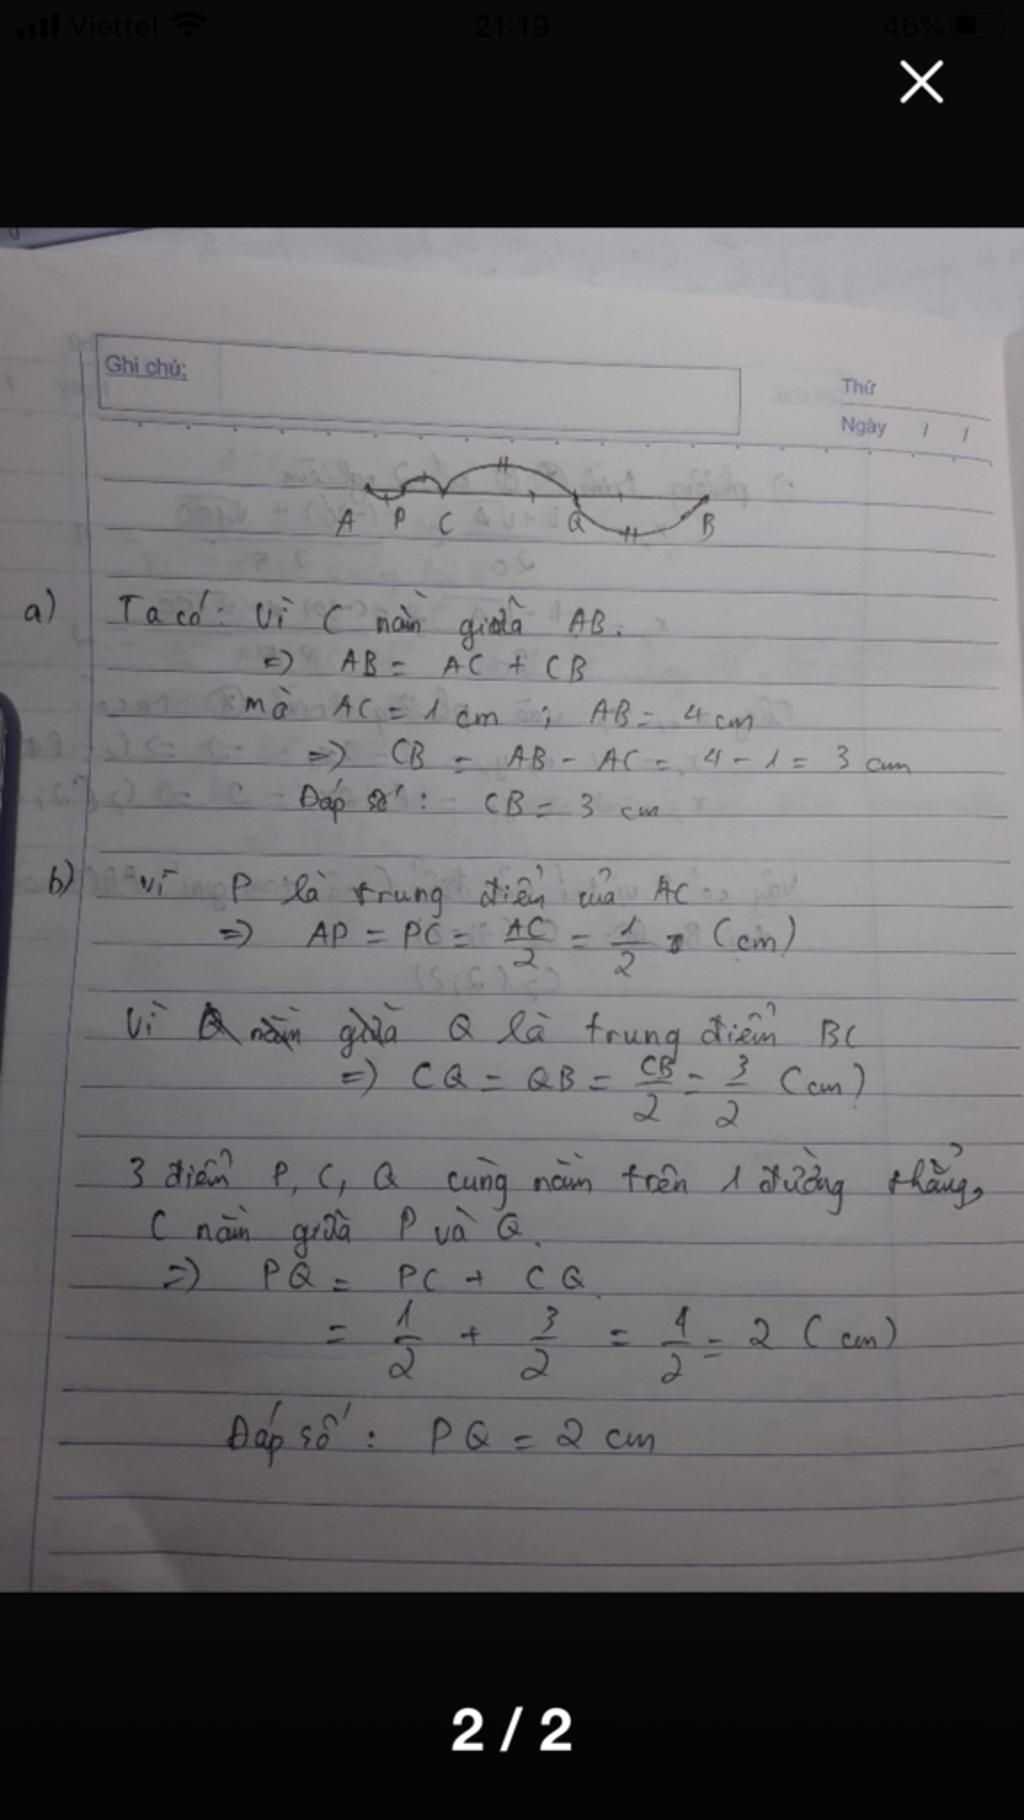 Viettel 21:19 46%
Ghi chú:
Thứ
Ngày / /
A P C Q B
a) Ta có: Vì C nằm giữa AB.
=) AB = AC + CB
mà AC = 1 cm ; AB = 4 cm
=) CB = AB - AC = 4 - 1 = 3 cm
Đáp số: CB = 3 cm
b) Vì P là trung điểm của AC
=) AP = PC = AC/2 = 1/2 (cm)
Vì Q là trung điểm BC
=) CQ = QB = CB/2 = 3/2 (cm)
3 điểm P, C, Q cùng nằm trên 1 đường thẳng,
C nằm giữa P và Q.
=) PQ = PC + CQ
= 1/2 + 3/2 = 4/2 = 2 (cm)
Đáp số: PQ = 2 cm
2 / 2